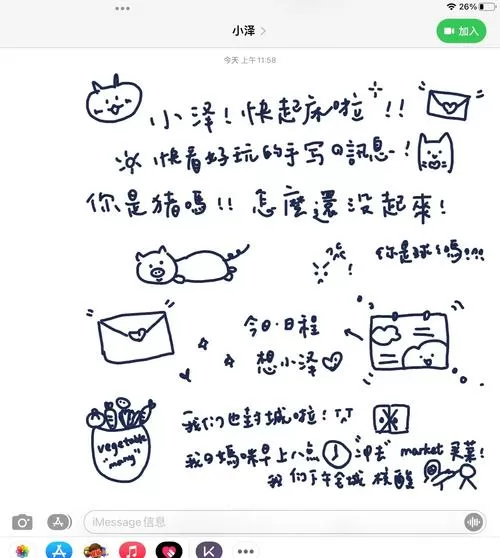 26%
小泽
加入
今天 上午11:58
小泽！快起床啦！！
快看好玩的手写の訊息~！
你是猪嗎!! 怎麼還没起來！
你是豬嗎???
今日·日程
想小泽
我们也封城啦！TT
vegetable "many"
我の媽咪早上八点！"沖去" market 买菜！
我们下午全城 核酸
iMessage信息